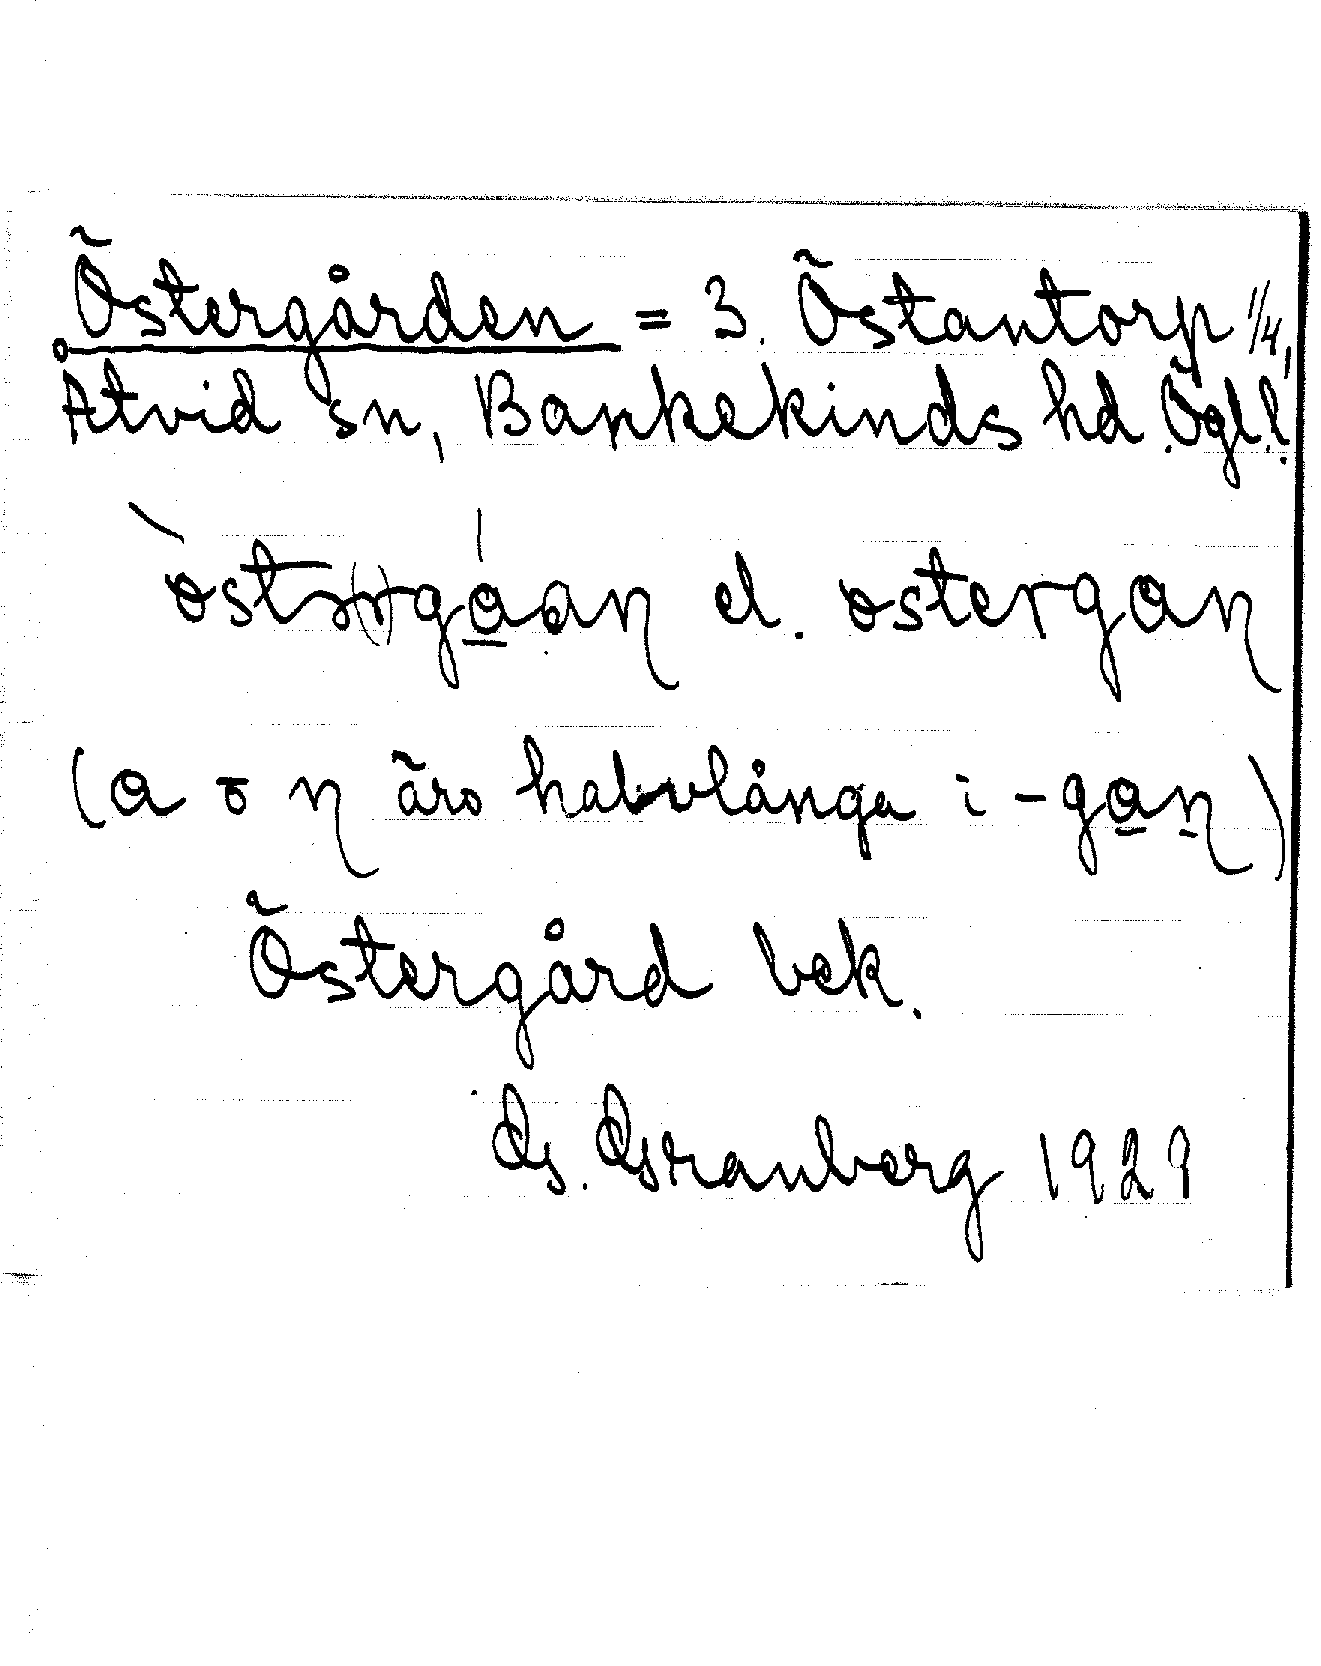 Östergården = 3. Östantorp 1/4,
Åtvid sn, Bankekinds hd Ögl.
el.
(a o n äro halvlånga i -gan)
Östergård bek.
G. Granberg 1929